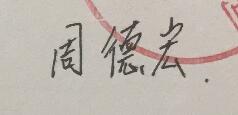 周德宏.